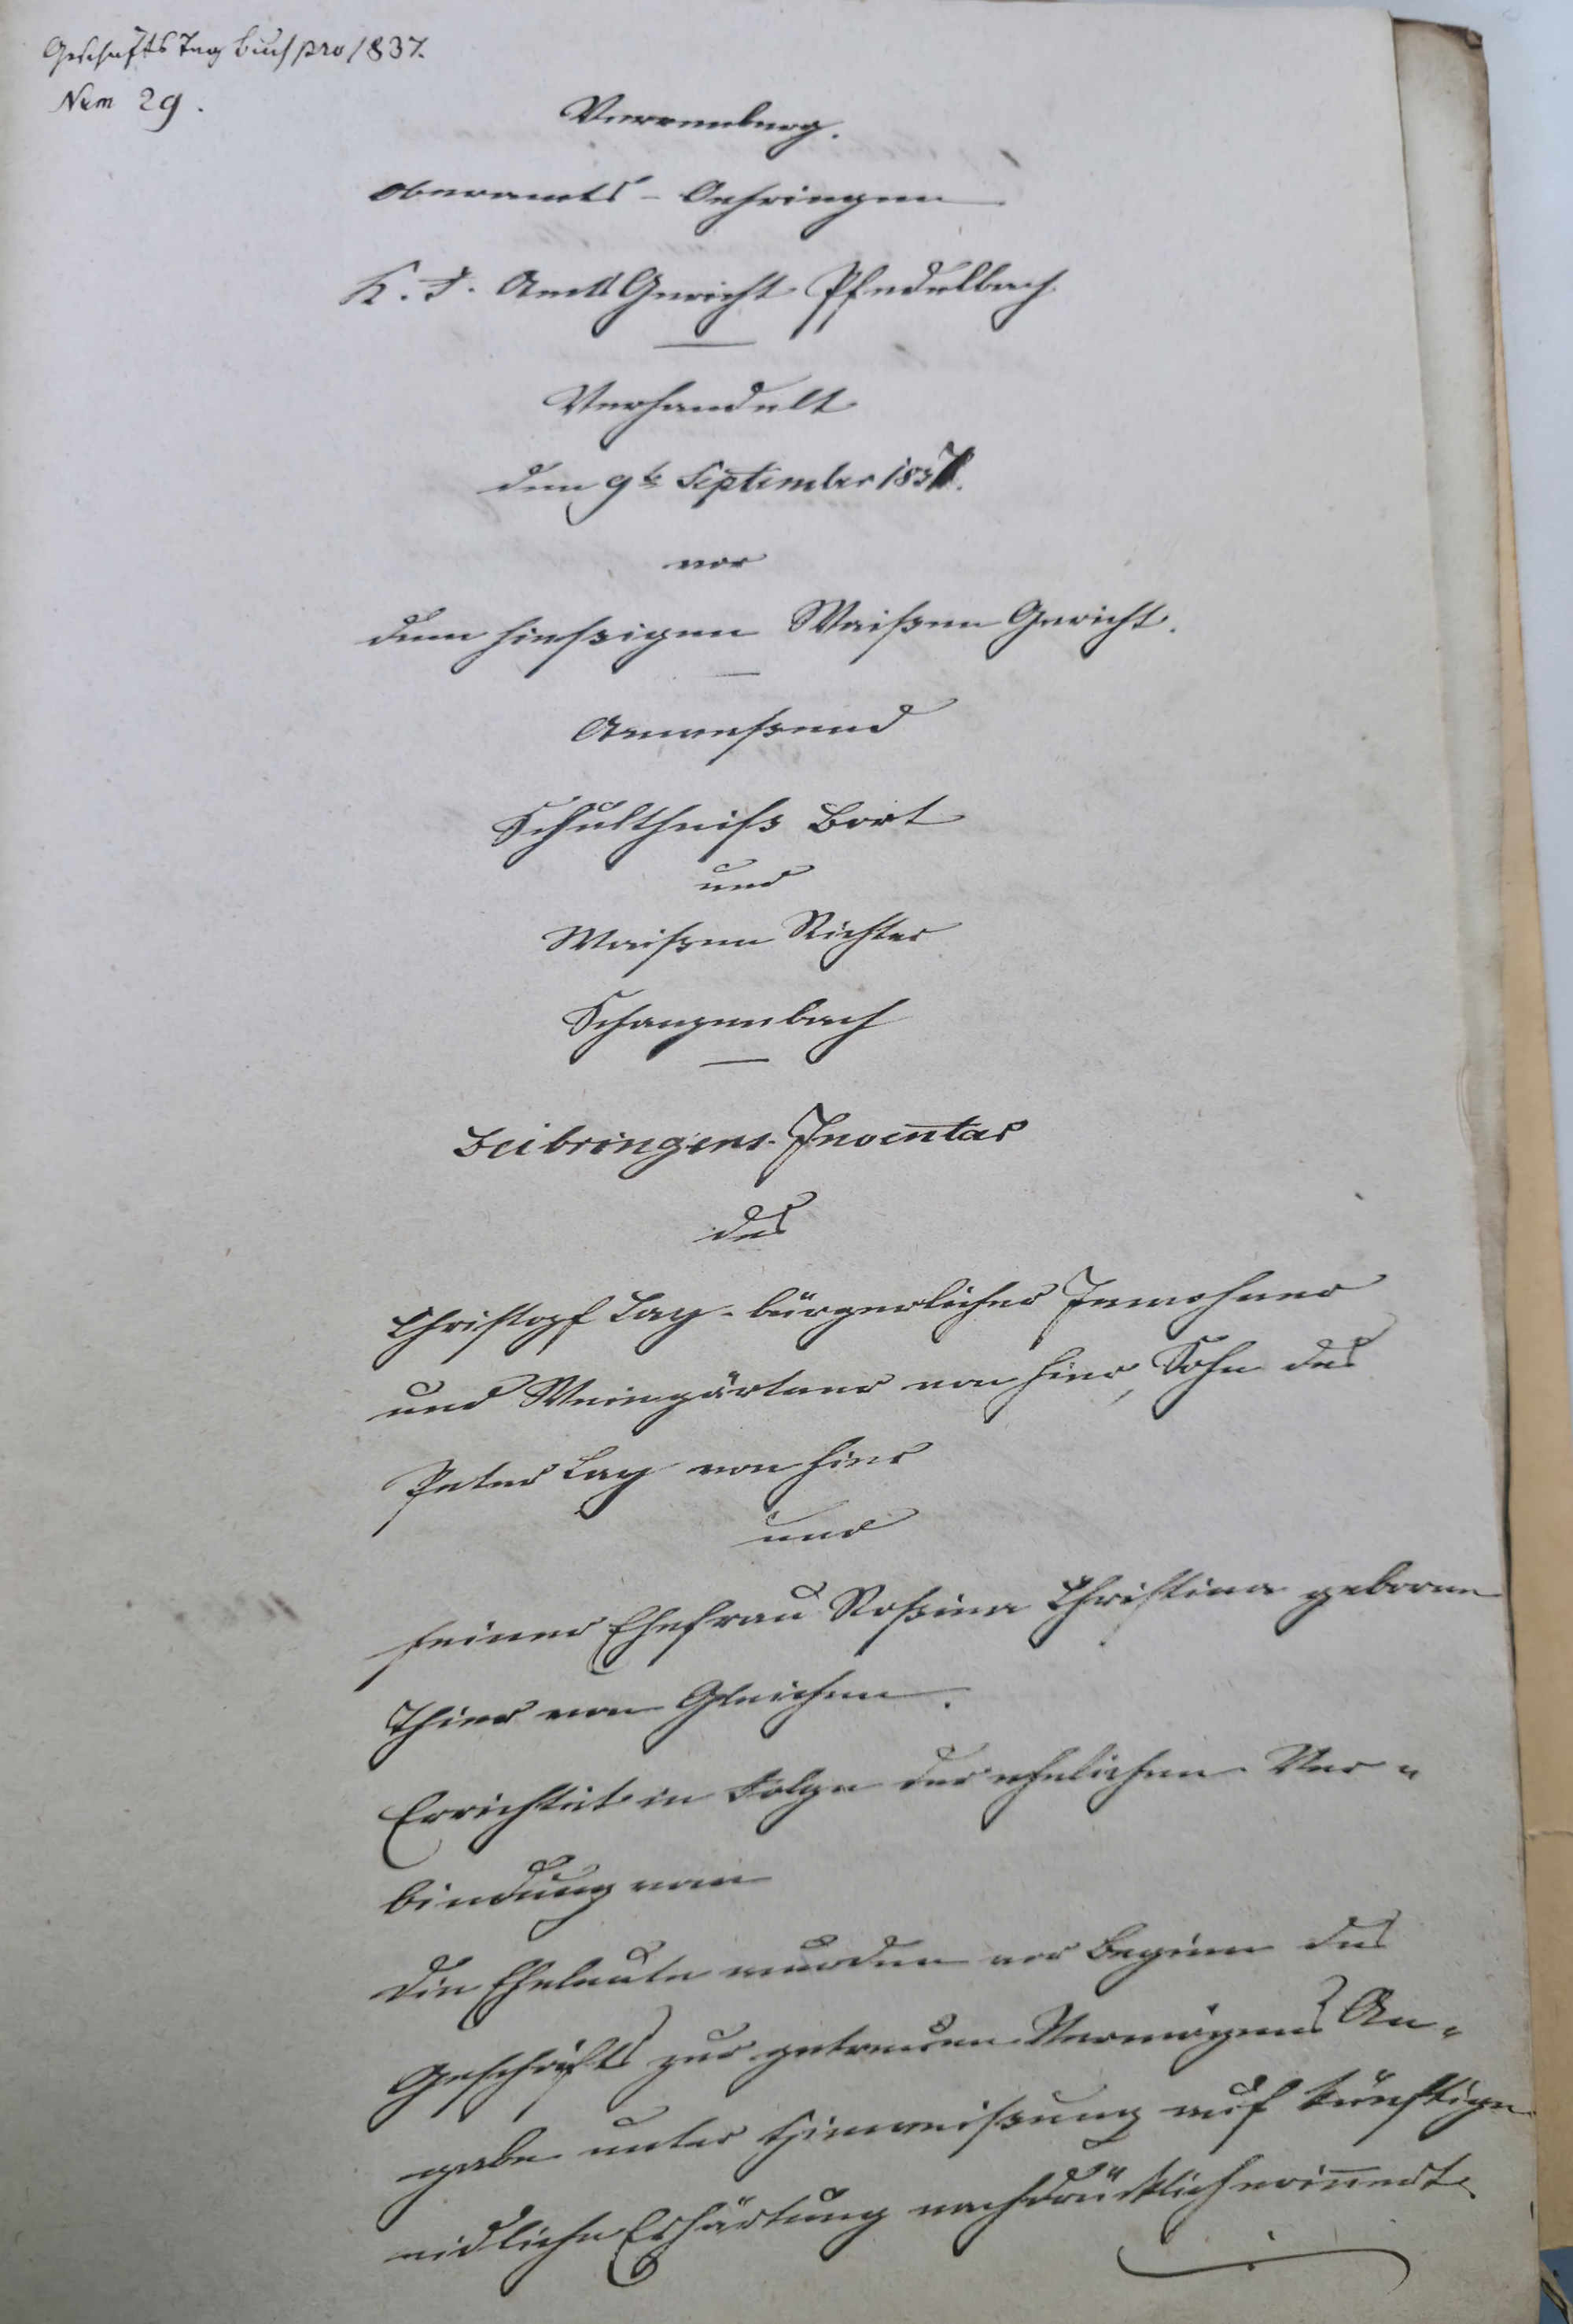 Geschäfts Tag Buch pro 1837.
Num 29.
Verrenberg.
Oberamts - Oehringen
K. F. Amts Gericht Pfedelbach
Verhandelt
den 9t September 1837.
vor
dem hießigen Waißen Gericht.
Anweßend
Schultheiß Bort
und
Waißen Richter
Schanzenbach
Beibringens-Inventar
des
Christoph Lay - bürgerlicher Innwohner
und Weingärtner von hier, Sohn des
Peter Lay von hier
und
seiner Ehefrau Roßina Christina geborne
Thier von Gleichen.
Errichtet in Folge der ehelichen Ver-
bindung vom
Die Eheleute wurden vor Beginn des
Geschäfts zur getreuen Vermögens An-
gabe unter Hinweißung auf künftige
eidliche Erhärtung nachdrücklich erinnert.